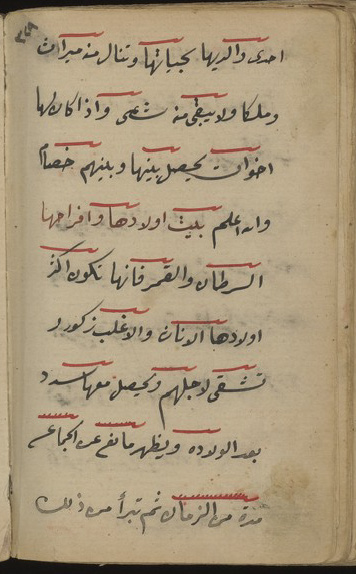 احدى والديها بحياتها وتنال من ميراث
وملكا ولا يبقى منه شىء واذا كان لها
اخوان يحصل بينها وبينهم خصام
والله اعلم بيت اولادها وافراحها
السرطان والقمر فانها تكون اكثر
اولادها الاناث والاغلب ذكور و
تشقى لاجلهم ويحصل معها سدد
بعد الولاده ويظهر مانع عن الجماع
مدة من الزمان ثم تبرأ من ذلك